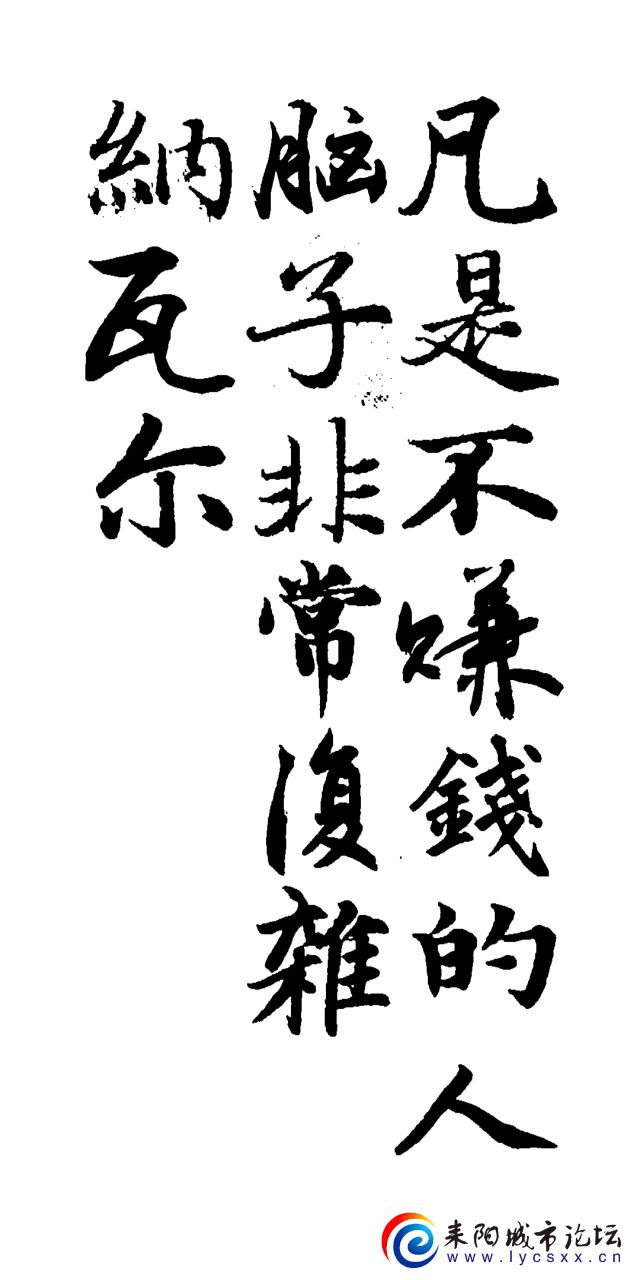 凡是不赚錢的人
脑子非常復雜
納瓦尔
耒阳城市论坛
www.lycsxx.cn